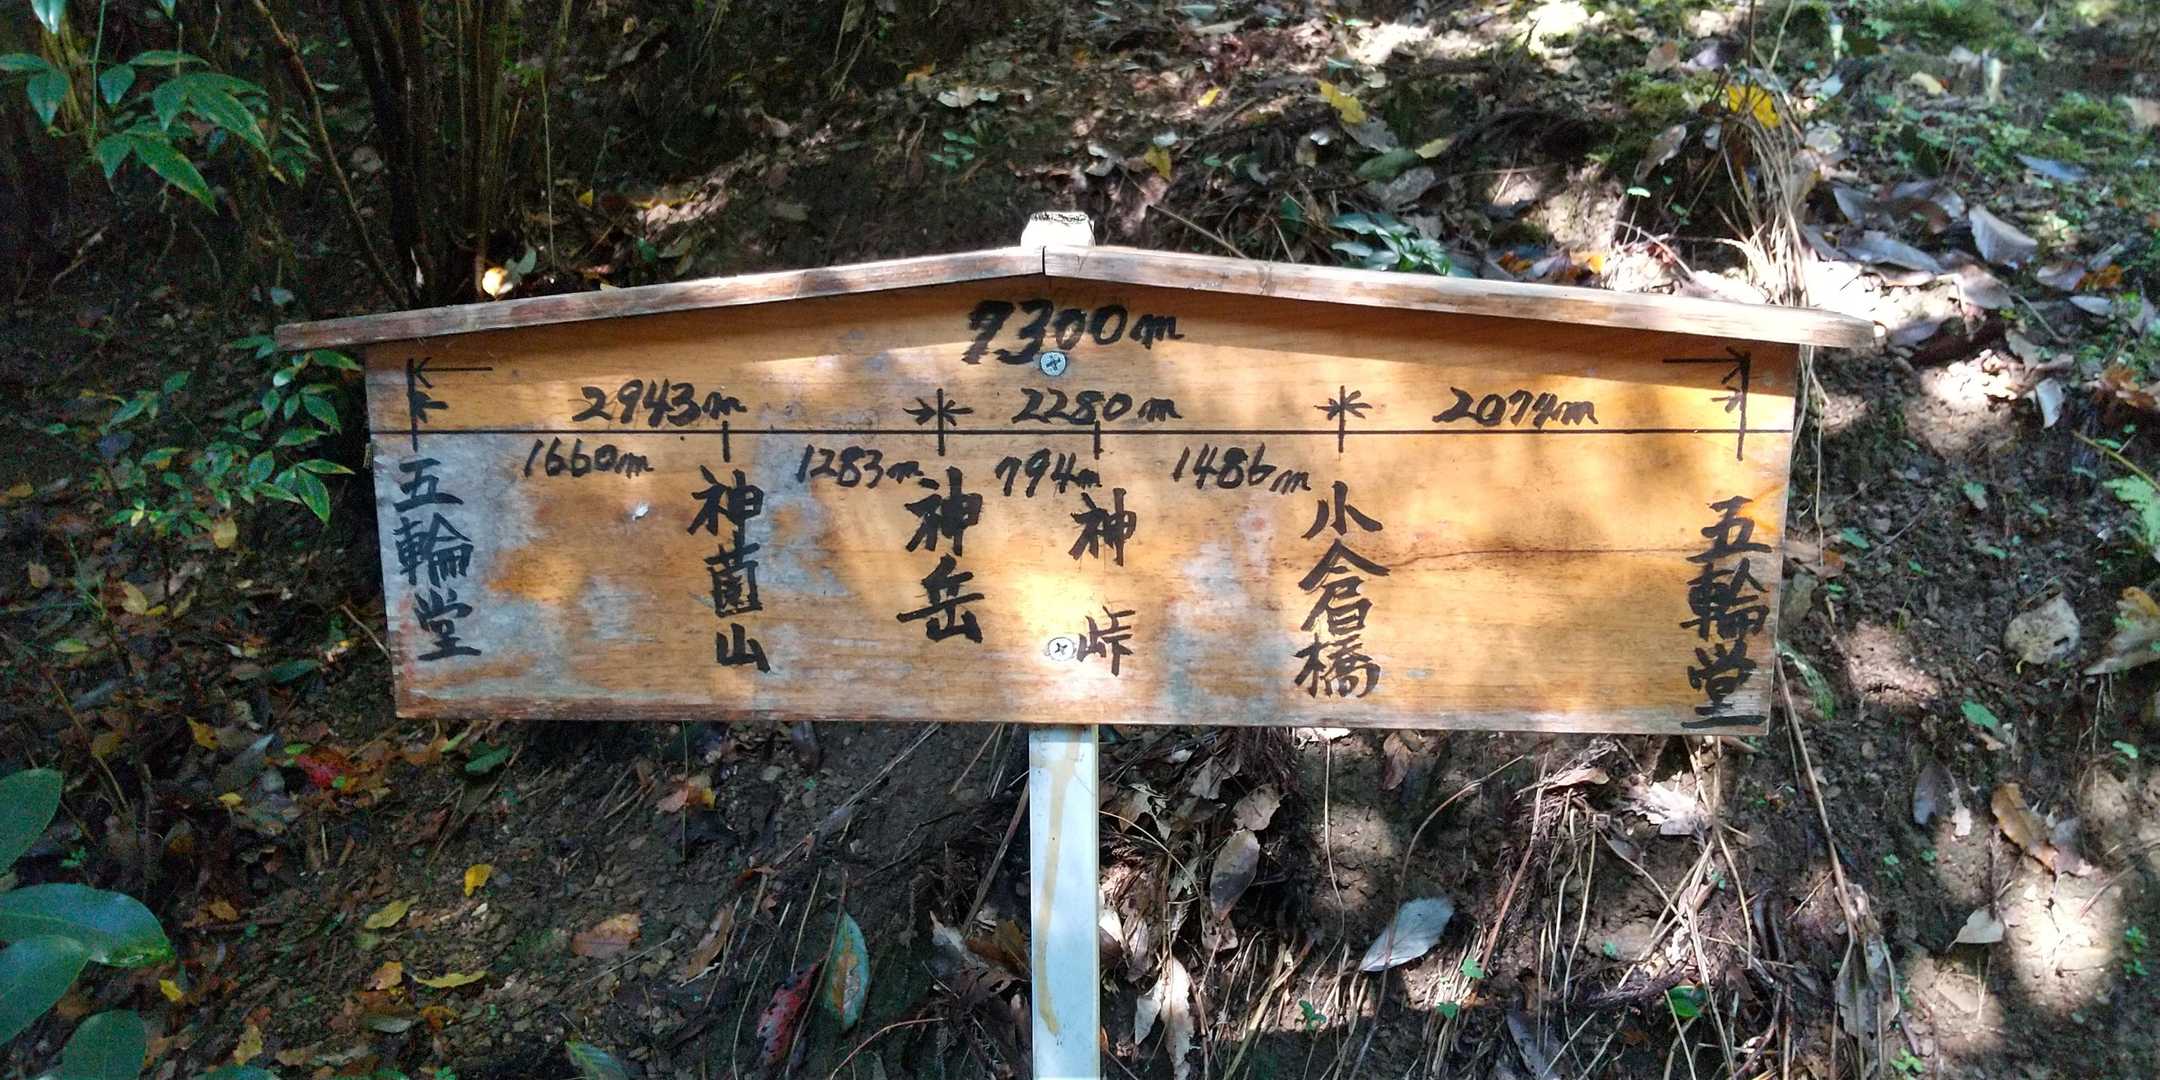 7300m
2943m
2280m
2074m
1660m
1283m
794m
1486m
五輪堂
神菌山
神岳
神峠
小倉橋
五輪堂